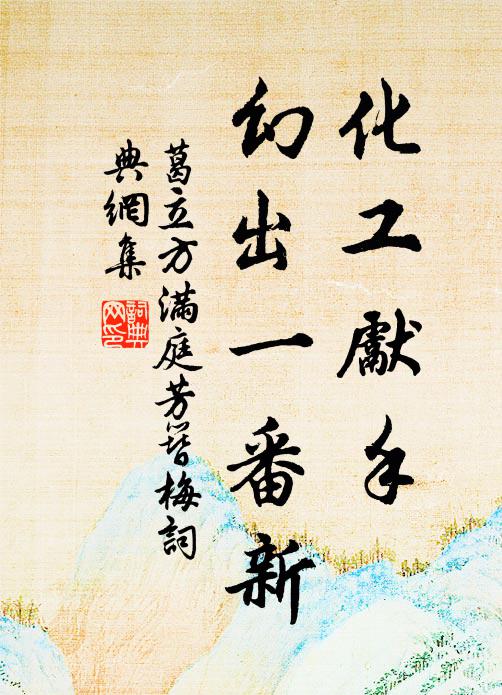 化工獻手
幻出一番新
葛立方滿庭芳簪梅詞
典網集
詞典
网印